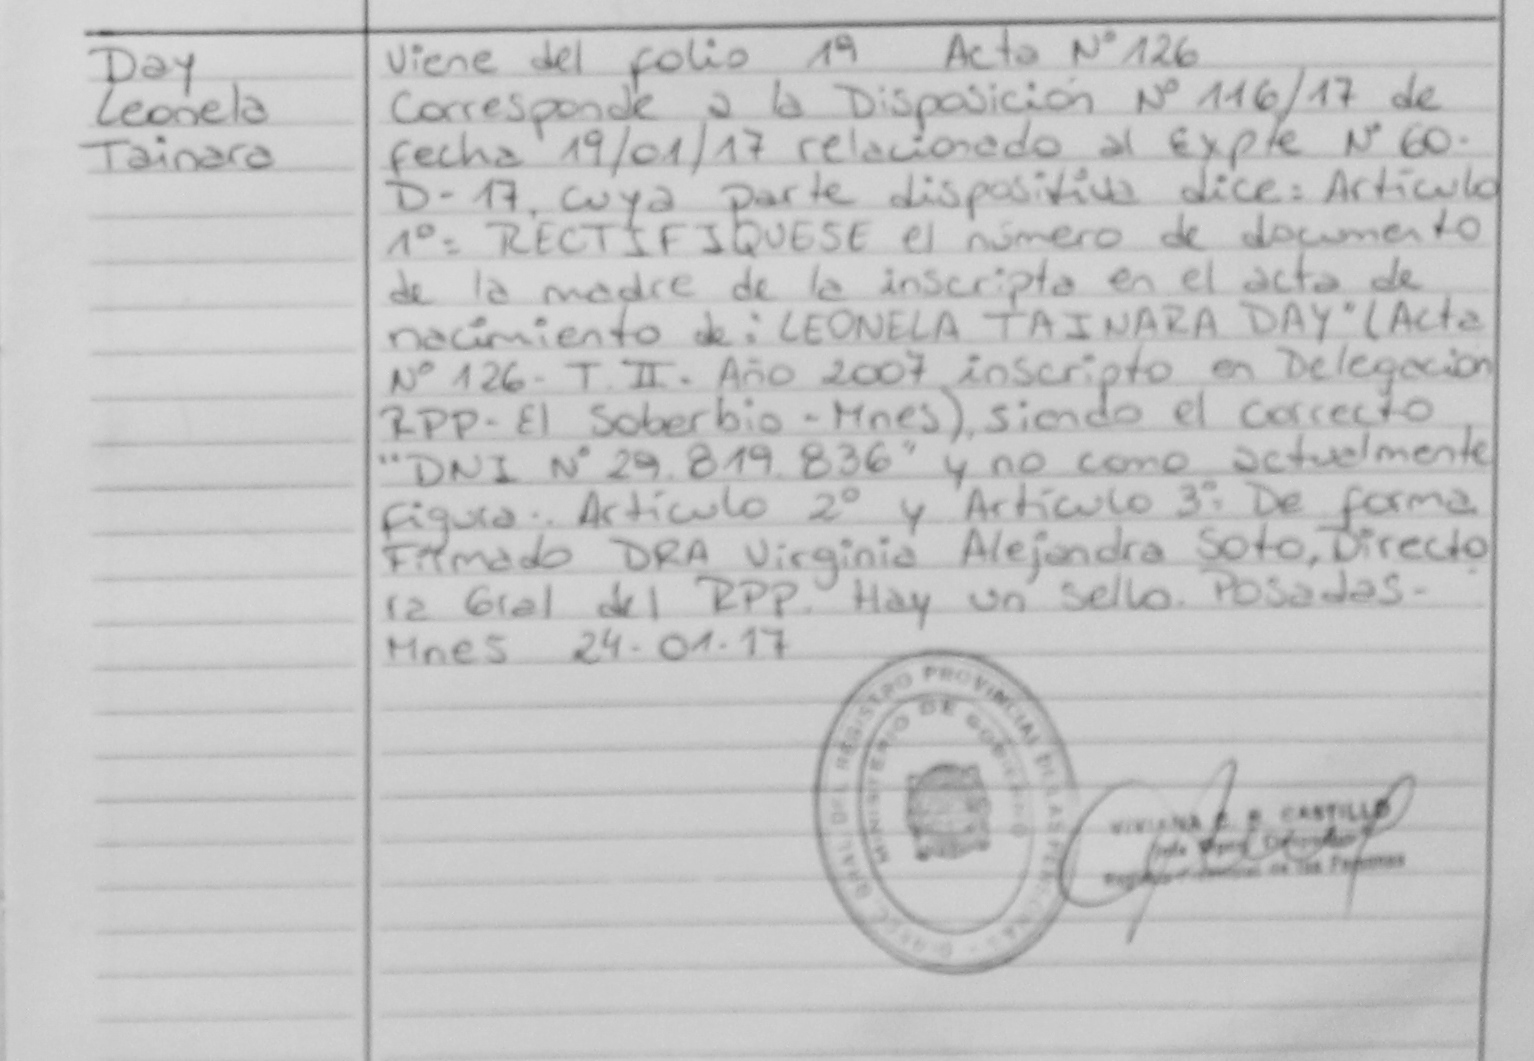 Day
Leonela
Tainara
Viene del folio 19 Acta Nº 126
Corresponde a la Disposición Nº 116/17 de
fecha 19/01/17 relacionado al Expte Nº 60-
D-17, cuya parte dispositiva dice: Artículo
1º= RECTIFIQUESE el número de documento
de la madre de la inscripta en el acta de
nacimiento de: LEONELA TAINARA DAY" (Acta
Nº 126- T. II. Año 2007 inscripto en Delegación
RPP- El Soberbio - Mnes), siendo el correcto
"DNI Nº 29.819.836" y no como actualmente
figura.. Artículo 2º y Artículo 3º: De forma
Firmado DRA Virginia Alejandra Soto, Directo
ra Gral del RPP. Hay un sello. Posadas-
Mnes 24-01-17
DIRECC. GRAL. DEL REGISTRO PROVINCIAL DE LAS PERSONAS
MINISTERIO DE GOBIERNO
VIVIANA CASTILLO
de las Personas